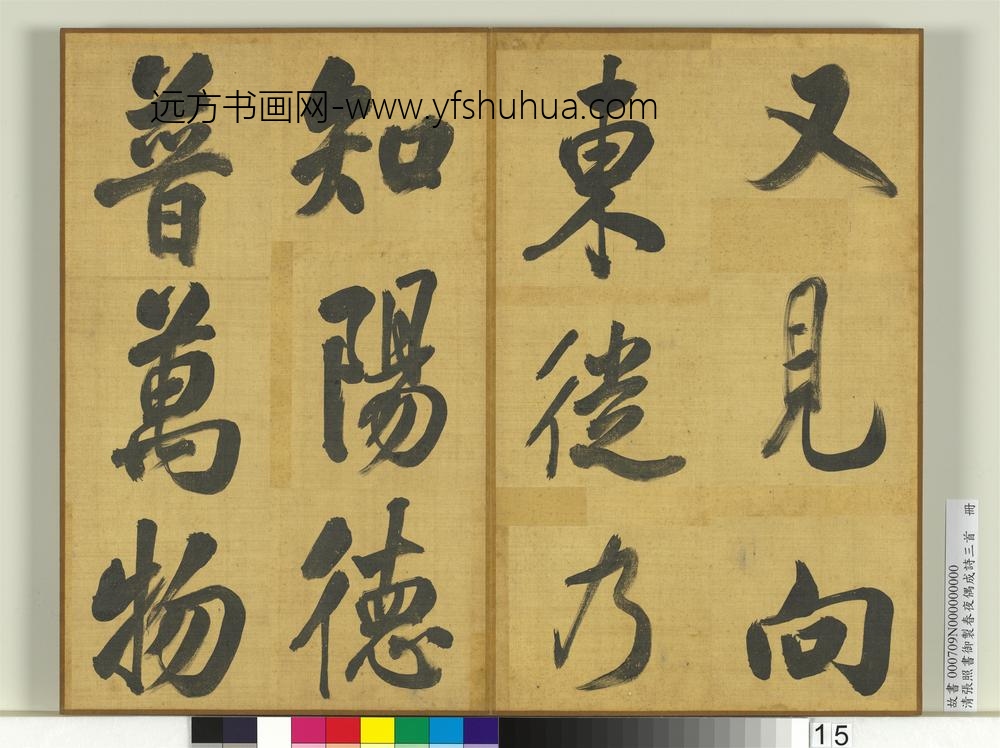 又見向
東徙乃
知陽德
普萬物
远方书画网-www.yfshuhua.com
故書 000709N000000000
清張照書御製春夜偶成詩三首 冊
15